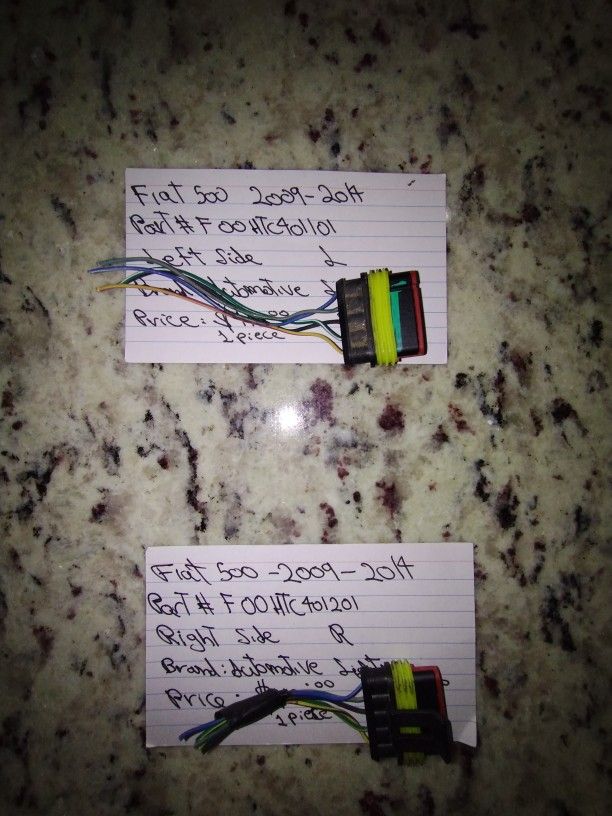 Fiat 500 2009-2014
Part # F00HTC401101
Left Side L
Automotive
Price: $
1 piece
Fiat 500 -2009-2014
Part # F00HTC401201
Right Side R
Brand: Automotive
Price: :00
1 piece